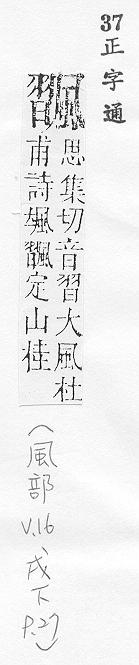 37 正字通
飁 思集切音習大風杜
甫詩飁飁定山桂
(風部 V.16、戌下 P.27)